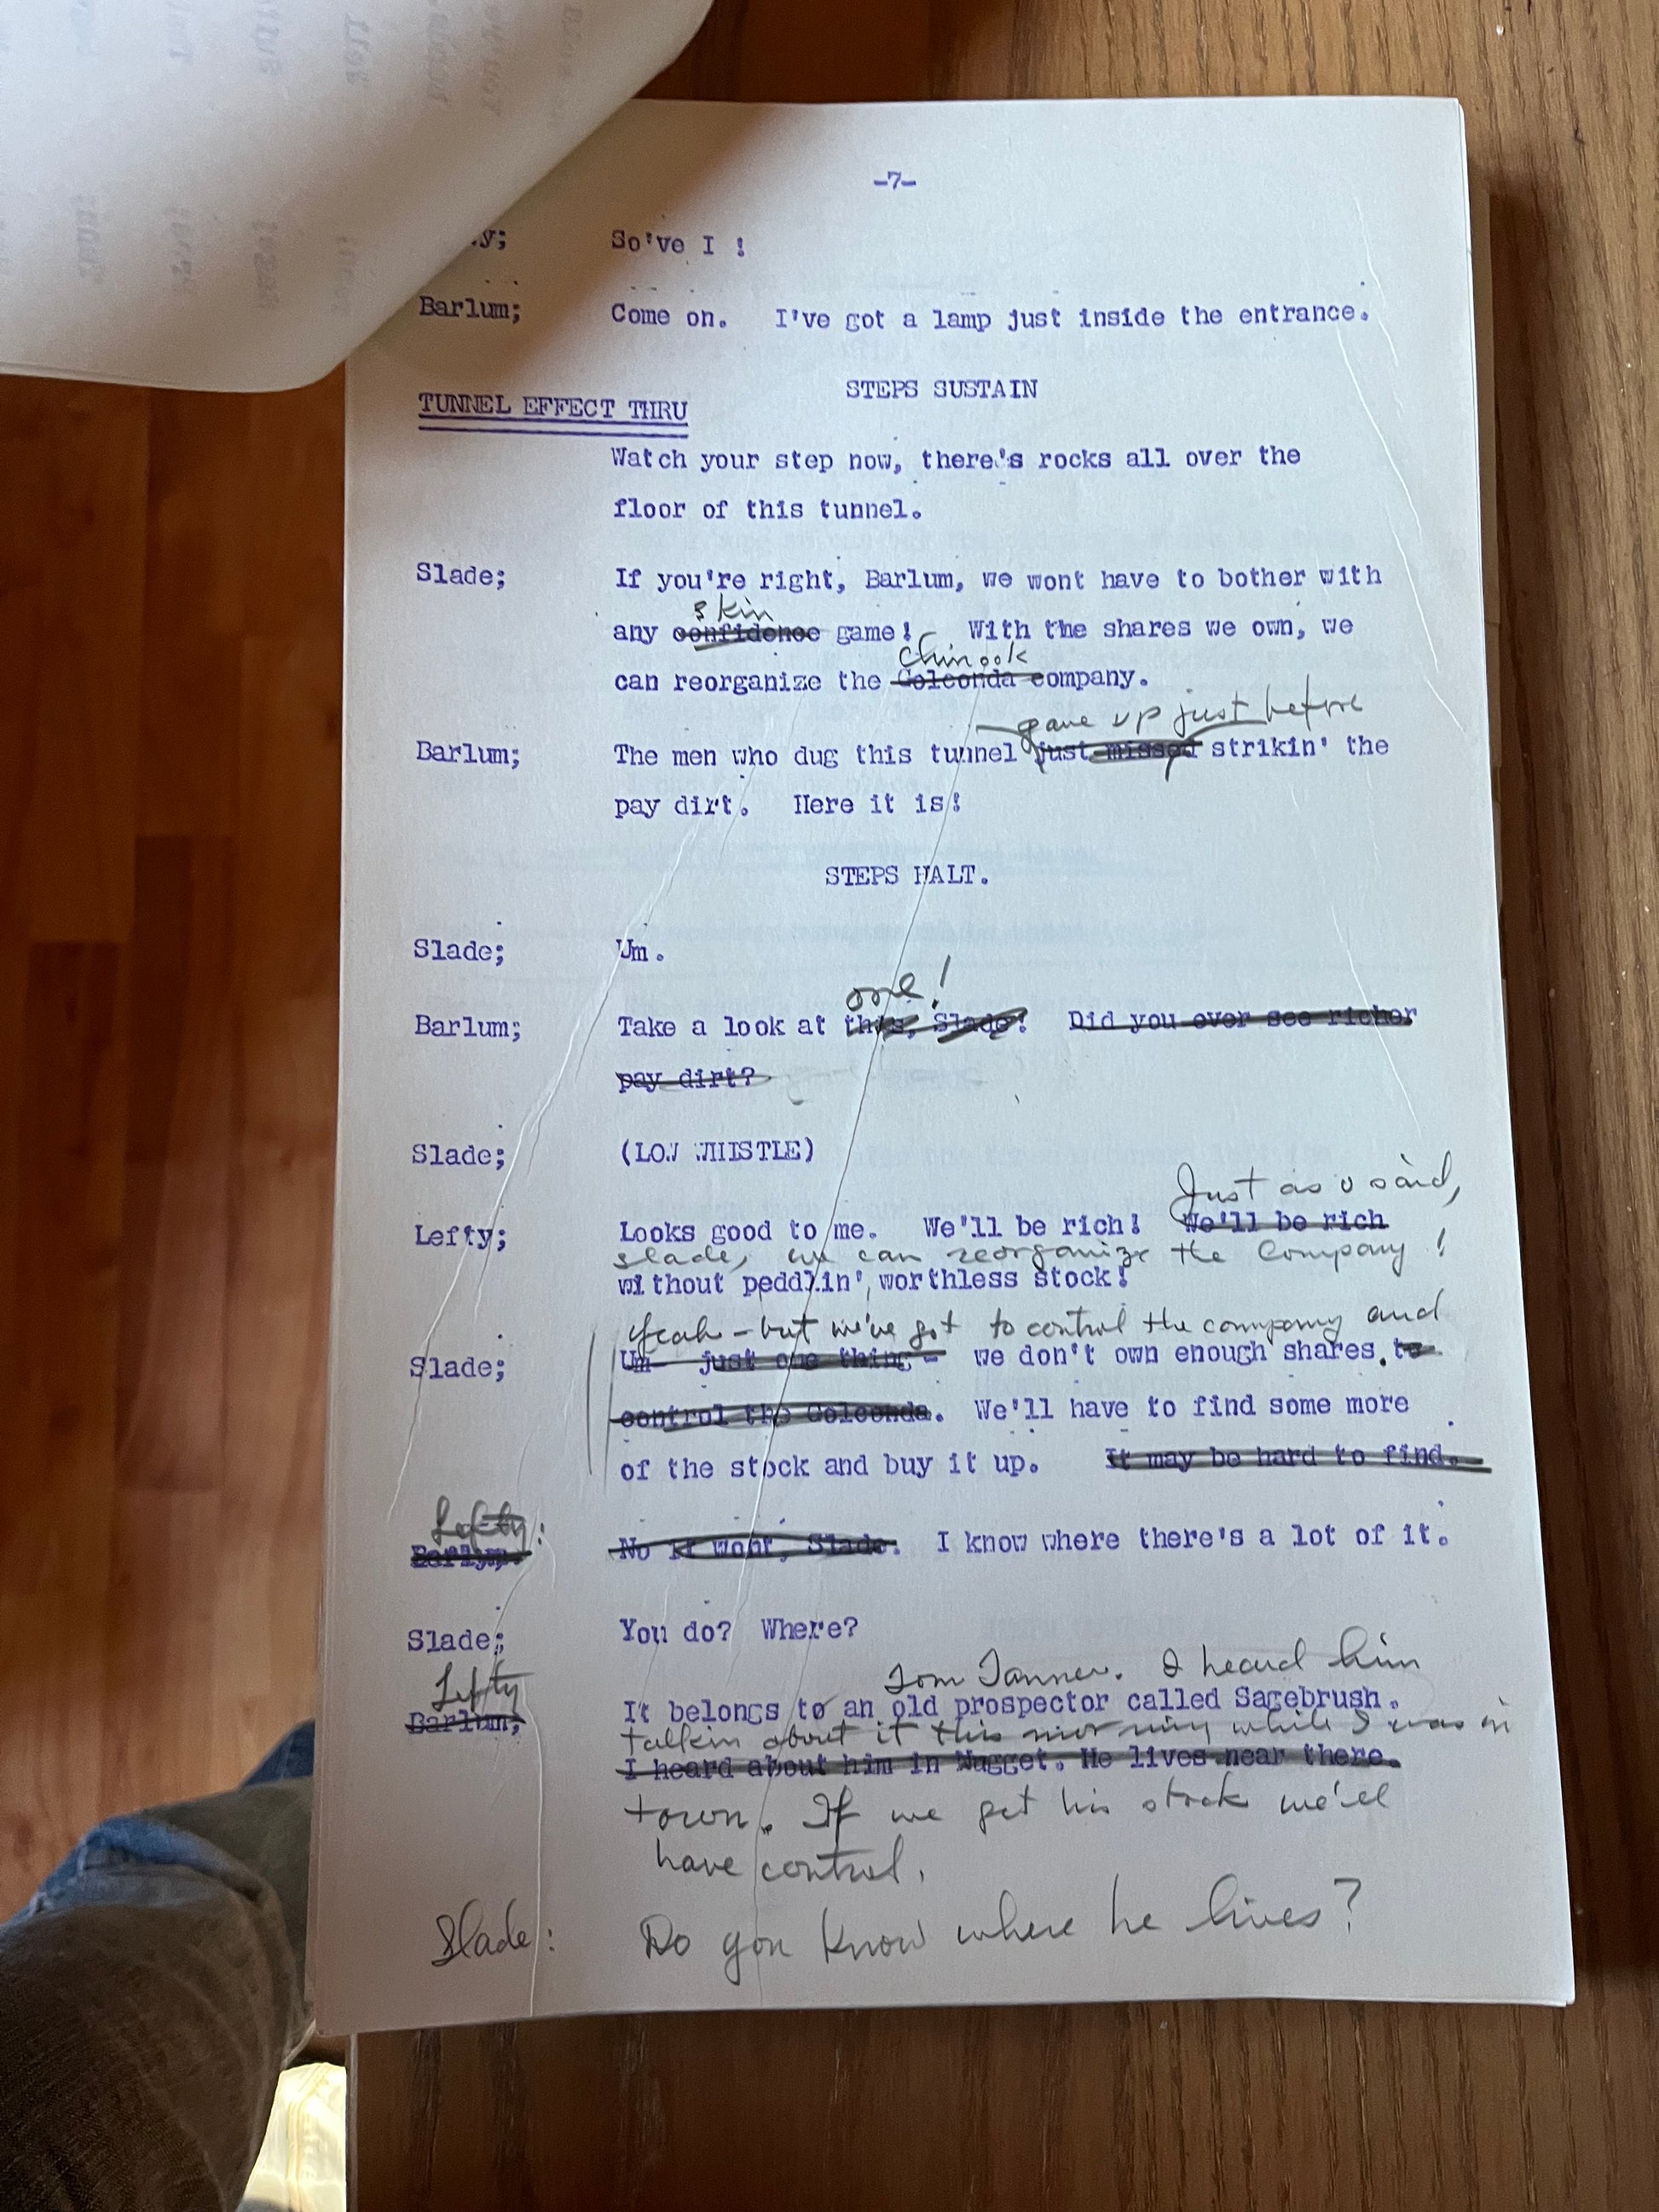 -7-
y; So've I !
Barlum; Come on. I've got a lamp just inside the entrance.
STEPS SUSTAIN
TUNNEL EFFECT THRU
Watch your step now, there's rocks all over the
floor of this tunnel.
Slade; If you're right, Barlum, we wont have to bother with
skin
any confidence game! With the shares we own, we
Chinook
can reorganize the Golconda company.
gave up just before
Barlum; The men who dug this tunnel just missed strikin' the
pay dirt. Here it is!
STEPS HALT.
Slade; Um.
one!
Barlum; Take a look at this, Slade! Did you ever see richer
pay dirt?
Slade; (LOW WHISTLE)
Just as u said,
Lefty; Looks good to me. We'll be rich! We'll be rich
slade, we can reorganize the Company!
without peddlin' worthless stock!
Yeah - but we've got to control the company and
Slade; Um- just one thing - we don't own enough shares. to
control the Golconda. We'll have to find some more
of the stock and buy it up. It may be hard to find.
Lefty:
Barlum: No it wont, Slade. I know where there's a lot of it.
Slade; You do? Where?
Tom Tanner. I heard him
Lefty
Barlum; It belongs to an old prospector called Sagebrush.
talkin about it this morning while I was in
I heard about him in Nugget. He lives near there.
town. If we get his stock we'll
have control.
Slade: Do you know where he lives?